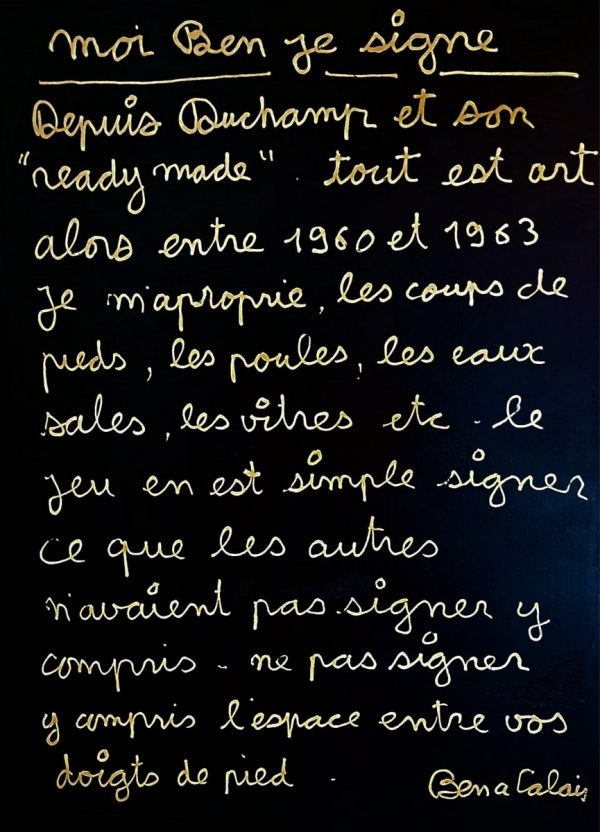 moi Ben je signe
Depuis Duchamp et son
"ready made". tout est art
alors entre 1960 et 1963
je m'aproprie, les coups de
pieds, les poules, les eaux
sales, les vitres etc. le
jeu en est simple signer
ce que les autres
n'avaient pas signer y
compris - ne pas signer
y compris l'espace entre vos
doigts de pied -
Ben a Calais